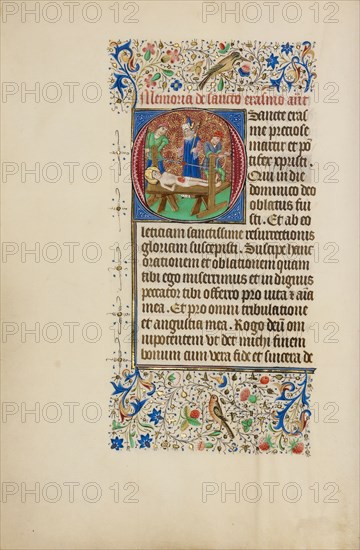 Memoria de sancto erasmo ant
Sancte eras
me preciose
martir et po
tifex xpristi.
Qui in die
dominico deo
oblatus fui
sti. Et ab eo
leticiam sanctissime resurrectionis
gloriam suscepisti. Suscipe hanc
orationem et oblationem quam
tibi ego miserrimus et in dignus
peccator tibi offerro pro vita et aia
mea. Et pro omni tribulatione
et angustia mea. Rogo deum om
nipotentem vt det michi finem
bonum cum vera fide et sincera de
PHOTO 12